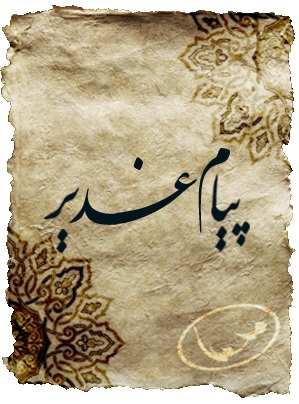 پیام غدیر